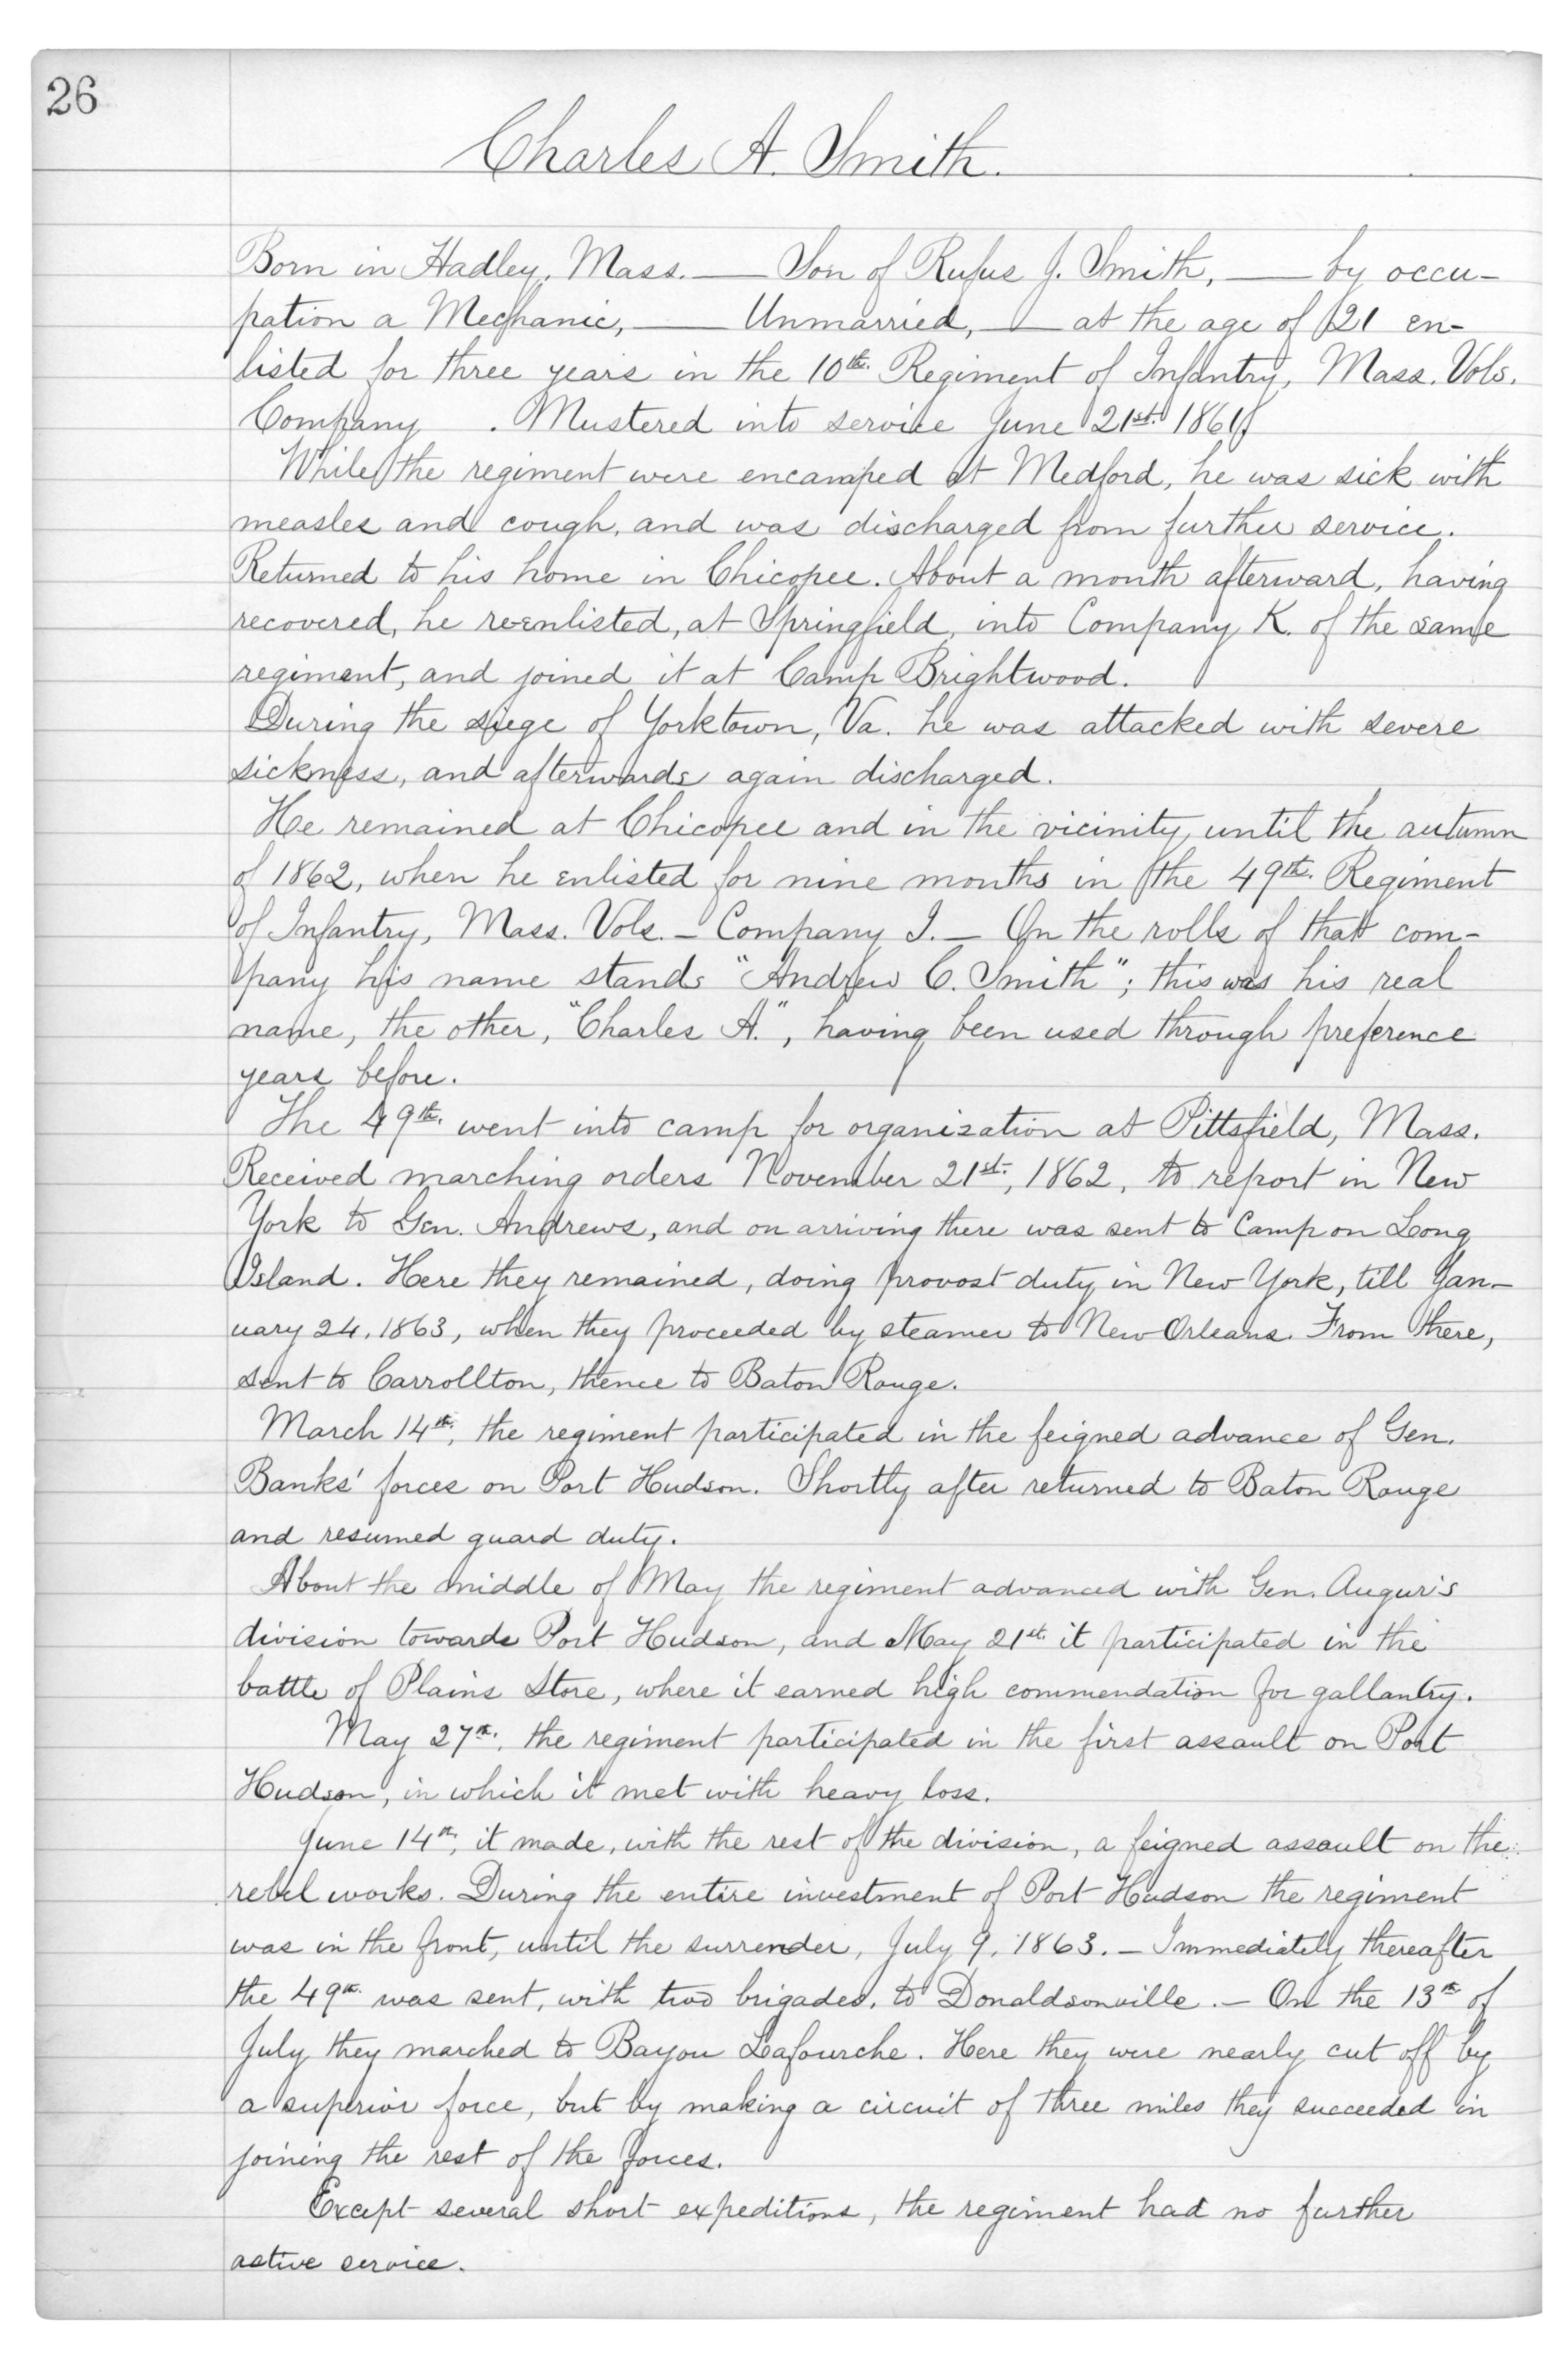 26
Charles A. Smith.
Born in Hadley, Mass. — Son of Rufus J. Smith, — by occu-
pation a Mechanic, — Unmarried, — at the age of 21 en-
listed for three years in the 10th. Regiment of Infantry, Mass. Vols.
Company . Mustered into service June 21st. 1861.
While the regiment were encamped at Medford, he was sick with
measles and cough, and was discharged from further service.
Returned to his home in Chicopee. About a month afterward, having
recovered, he re-enlisted, at Springfield, into Company K. of the same
regiment, and joined it at Camp Brightwood.
During the siege of Yorktown, Va. he was attacked with severe
sickness, and afterwards again discharged.
He remained at Chicopee and in the vicinity until the autumn
of 1862, when he enlisted for nine months in the 49th. Regiment
of Infantry, Mass. Vols. — Company I. — On the rolls of that com-
pany his name stands "Andrew C. Smith"; this was his real
name, the other, "Charles A.", having been used through preference
years before.
The 49th. went into camp for organization at Pittsfield, Mass.
Received marching orders November 21st., 1862, to report in New
York to Gen. Andrews, and on arriving there was sent to Camp on Long
Island. Here they remained, doing provost duty in New York, till Jan-
uary 24, 1863, when they proceeded by steamer to New Orleans. From there,
sent to Carrollton, thence to Baton Rouge.
March 14th, the regiment participated in the feigned advance of Gen.
Banks' forces on Port Hudson. Shortly after returned to Baton Rouge
and resumed guard duty.
About the middle of May the regiment advanced with Gen. Augur's
division towards Port Hudson, and May 21st. it participated in the
battle of Plains Store, where it earned high commendation for gallantry.
May 27th. the regiment participated in the first assault on Port
Hudson, in which it met with heavy loss.
June 14th, it made, with the rest of the division, a feigned assault on the
rebel works. During the entire investment of Port Hudson the regiment
was in the front, until the surrender, July 9, 1863. — Immediately thereafter
the 49th. was sent, with two brigades, to Donaldsonville. — On the 13th of
July they marched to Bayou Lafourche. Here they were nearly cut off by
a superior force, but by making a circuit of three miles they succeeded in
joining the rest of the forces.
Except several short expeditions, the regiment had no further
active service.